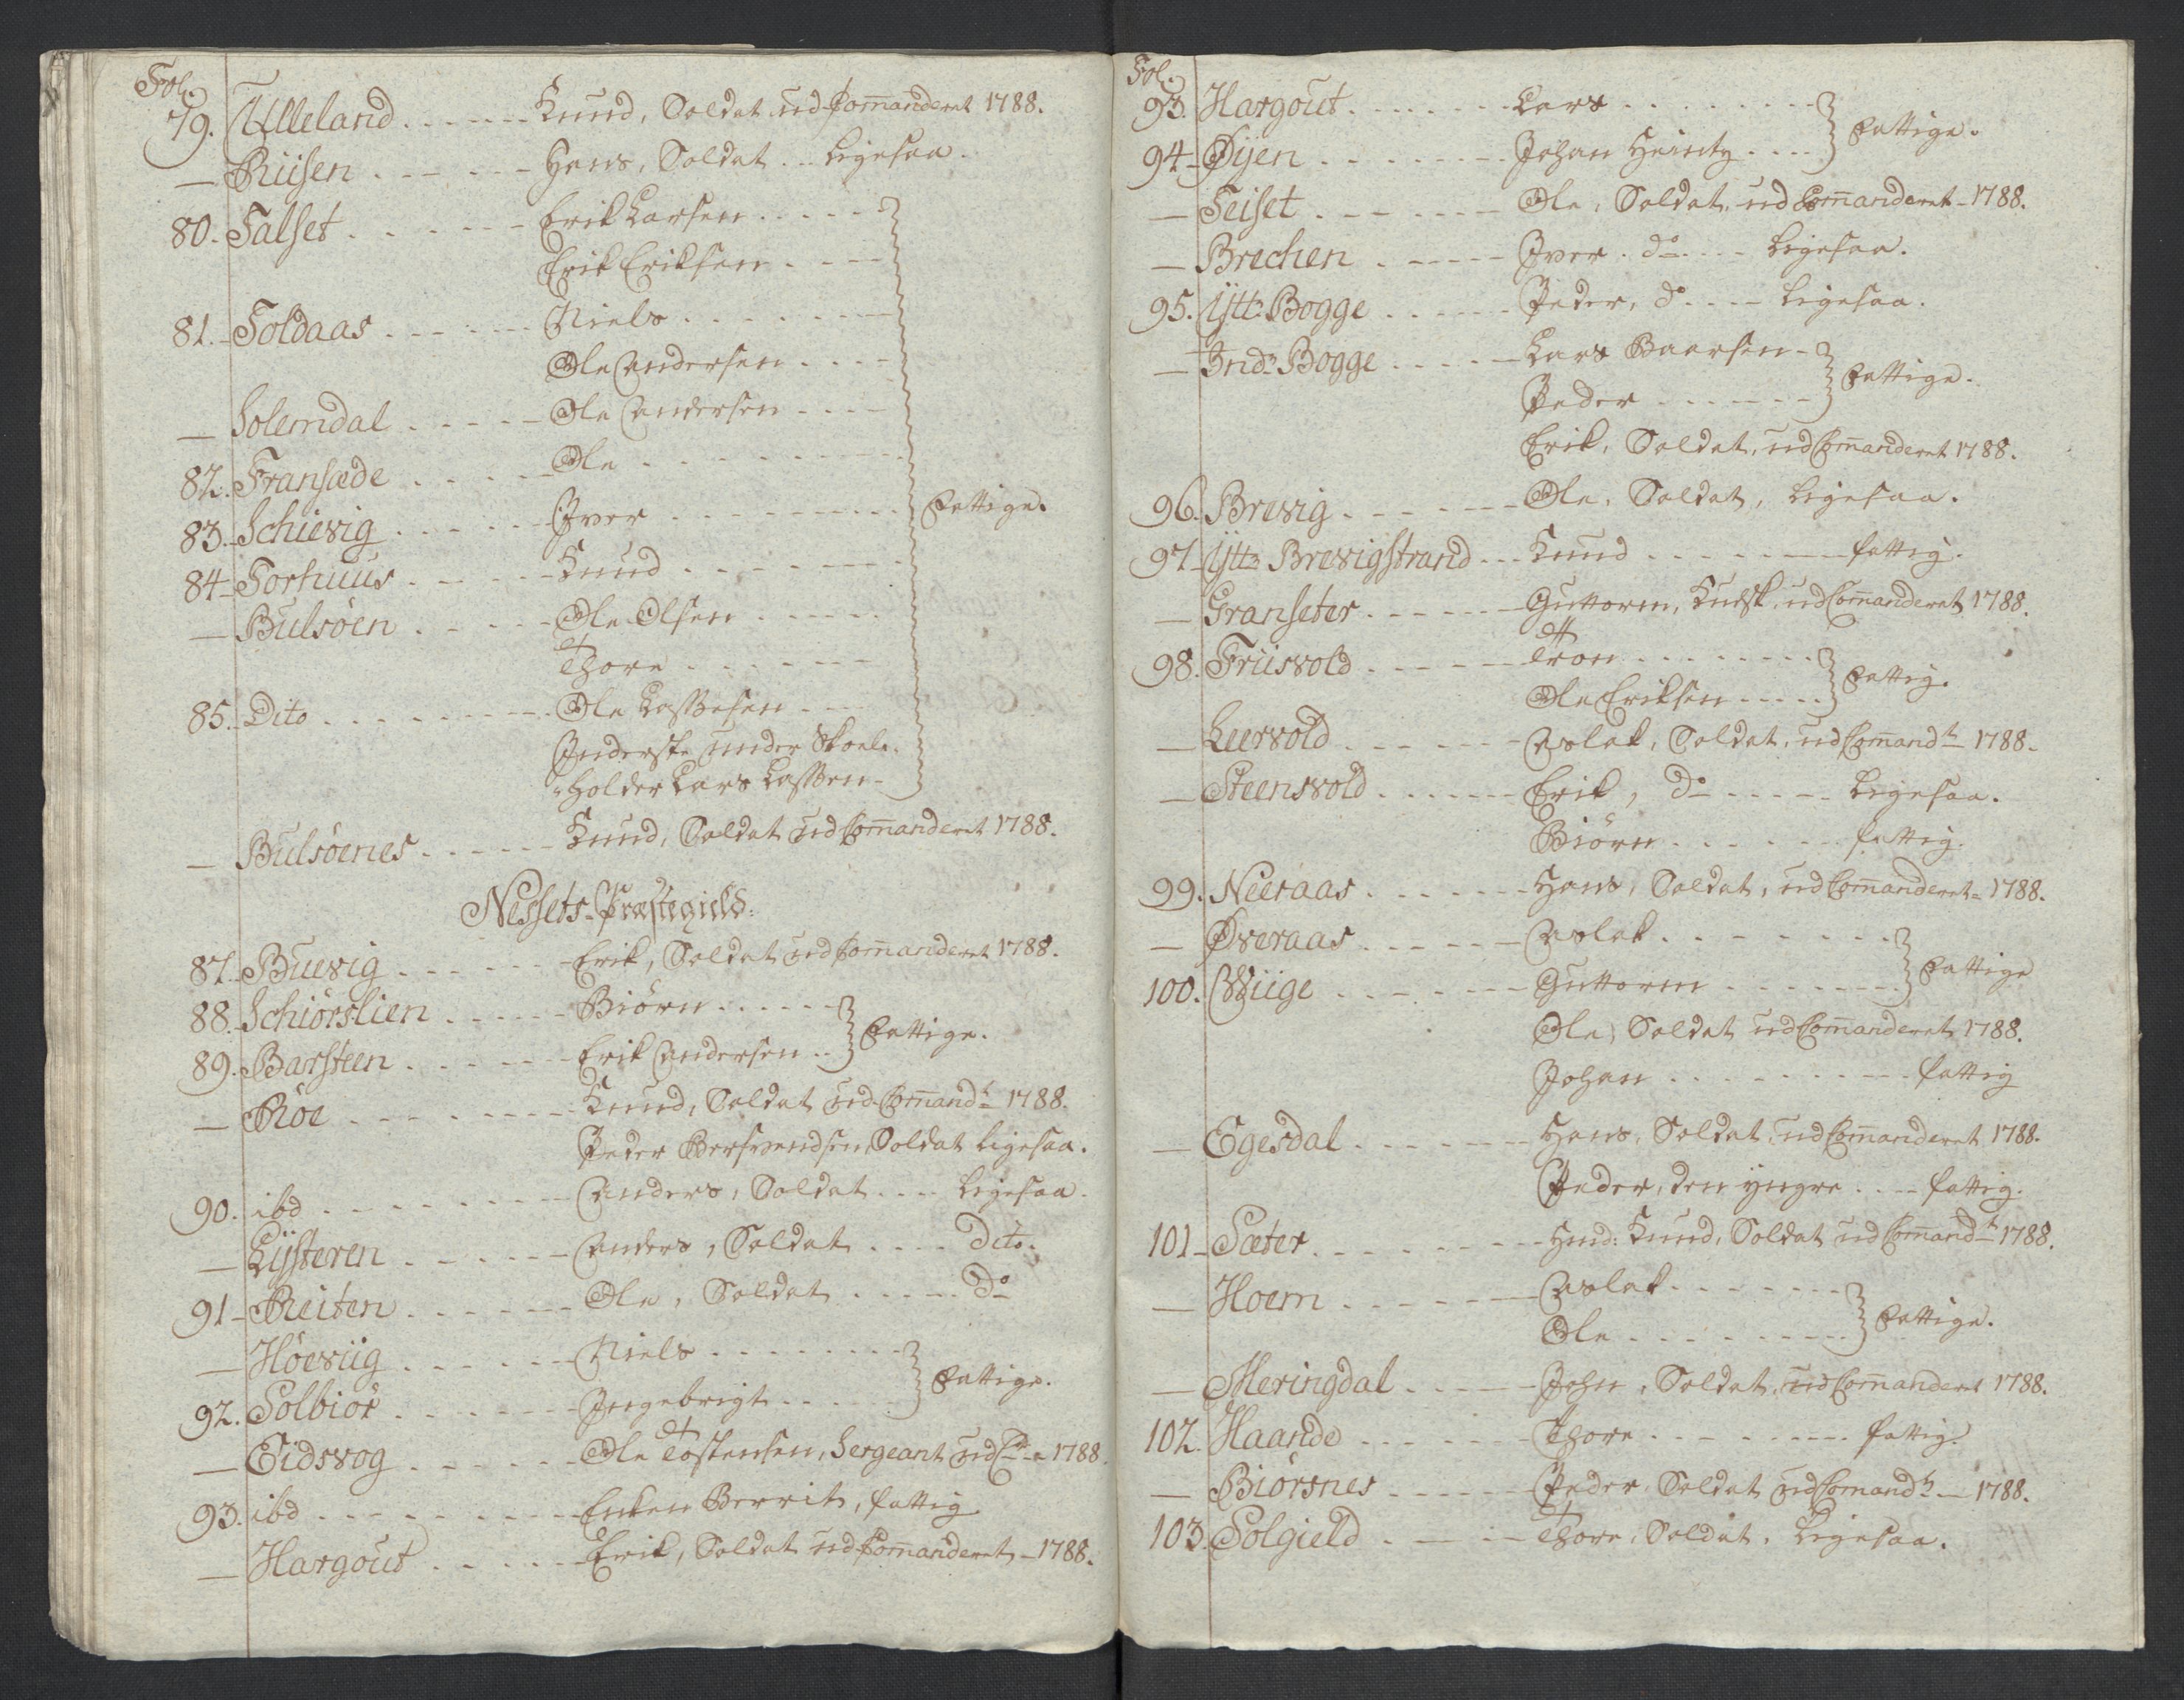 Fol.
79. Ulleland . . . . . . Knud, Soldat udCommanderet 1788.
— Riisen . . . . . . Hans, Soldat . . Ligesaa.
80. Falset . . . . . . Erik Larsen . . . . .
Erik Eriksen . . . .
81. Foldaas . . . . . . Niels . . . . . .
Ole Andersen . . . .
— Solemdal . . . . . Ole Andersen . . . .
82. Fransæde . . . . . Ole . . . . . . .
83. Schievig . . . . . Iver . . . . . . . Fattige.
84 Torhuus . . . . . Knud . . . . . . .
— Bulsöen . . . . . Ole Olsen . . . . .
Thore . . . . . .
85. Dito . . . . . . . Ole Lassesen . . .
Inderste under Skoele-
holder Lars Lassen
— Bulsöenes . . . . . Knud, Soldat udCommanderet 1788.
Nessets Præstegield:
87. Buevig . . . . . . Erik, Soldat udCommanderet 1788.
88. Schiörslien . . . . . Biörn . . . . .
89. Barsteen . . . . . Erik Andersen . . Fattige.
— Röe . . . . . . . Knud, Soldat udCommandt 1788.
Peder Bersvendsen, Soldat Ligesaa.
90. ibd . . . . . . . Anders, Soldat . . . Ligesaa.
— Lÿsteren . . . . . Anders, Soldat . . . . Dito.
91 Reiten . . . . . . Ole, Soldat . . . . . do
— Höeviig . . . . . . Niels . . . . . . .
92. Solbiör . . . . . . Ingebrigt . . . . . Fattige.
— Eidsvog . . . . . . Ole Tostensen, Sergeant ud Ct 1788.
93. ibd . . . . . . . Enken Berrit, fattig
— Hargout . . . . . Erik, Soldat udCommanderet 1788.
Fol.
93. Hargout . . . . . . Lars . . . . . . .
94 Øÿen . . . . . . . Johan Heintz . . . . Fattige.
— Feiset . . . . . . Ole, Soldat, udCommanderet 1788.
— Brechen . . . . . Iver . do . . . . Ligesaa.
95. Ÿttr Bogge . . . . . Peder, do . . . . Ligesaa.
— Indr Bogge . . . . . Lars Baarsen
Peder . . . . . . Fattige.
Erik, Soldat, udCommanderet 1788.
96. Brevig . . . . . . Ole, Soldat, Ligesaa.
97 Ÿttr Brevigstrand . . . Knud . . . . . . . fattig.
— Granseter . . . . . Guttorm, Kudsk, udCommanderet 1788.
98. Friisvold . . . . . Tron . . . . . . .
Ole Eriksen . . . . Fattig.
— Luervold . . . . . . Aslak, Soldat, udCommandt 1788.
— Steensvold . . . . . Erik, do . . . . . Ligesaa.
Biörn . . . . . . fattig.
99. Neeraas . . . . . . Hans, Soldat, udCommanderet 1788.
— Øveraas . . . . . Aslak . . . . . . .
100. Wiige . . . . . . Guttorm . . . . . . Fattige
Ole, Soldat udCommanderet 1788.
Johan . . . . . . . . fattig
— Egesdal . . . . . . Hans, Soldat, udCommanderet 1788.
Peder, den ÿngre . . . . fattig.
101 Sæter . . . . . . . Hmd: Knud, Soldat udCommandt 1788.
— Hoem . . . . . . Aslak . . . . . .
Ole . . . . . . . Fattige.
— Meringdal . . . . . John, Soldat, udCommanderet 1788.
102. Haande . . . . . . Thore . . . . . . . fattig.
— Biörsnes . . . . . Peder, Soldat udComandt 1788.
103. Solgield . . . . . Thore, Soldat. Ligesaa.